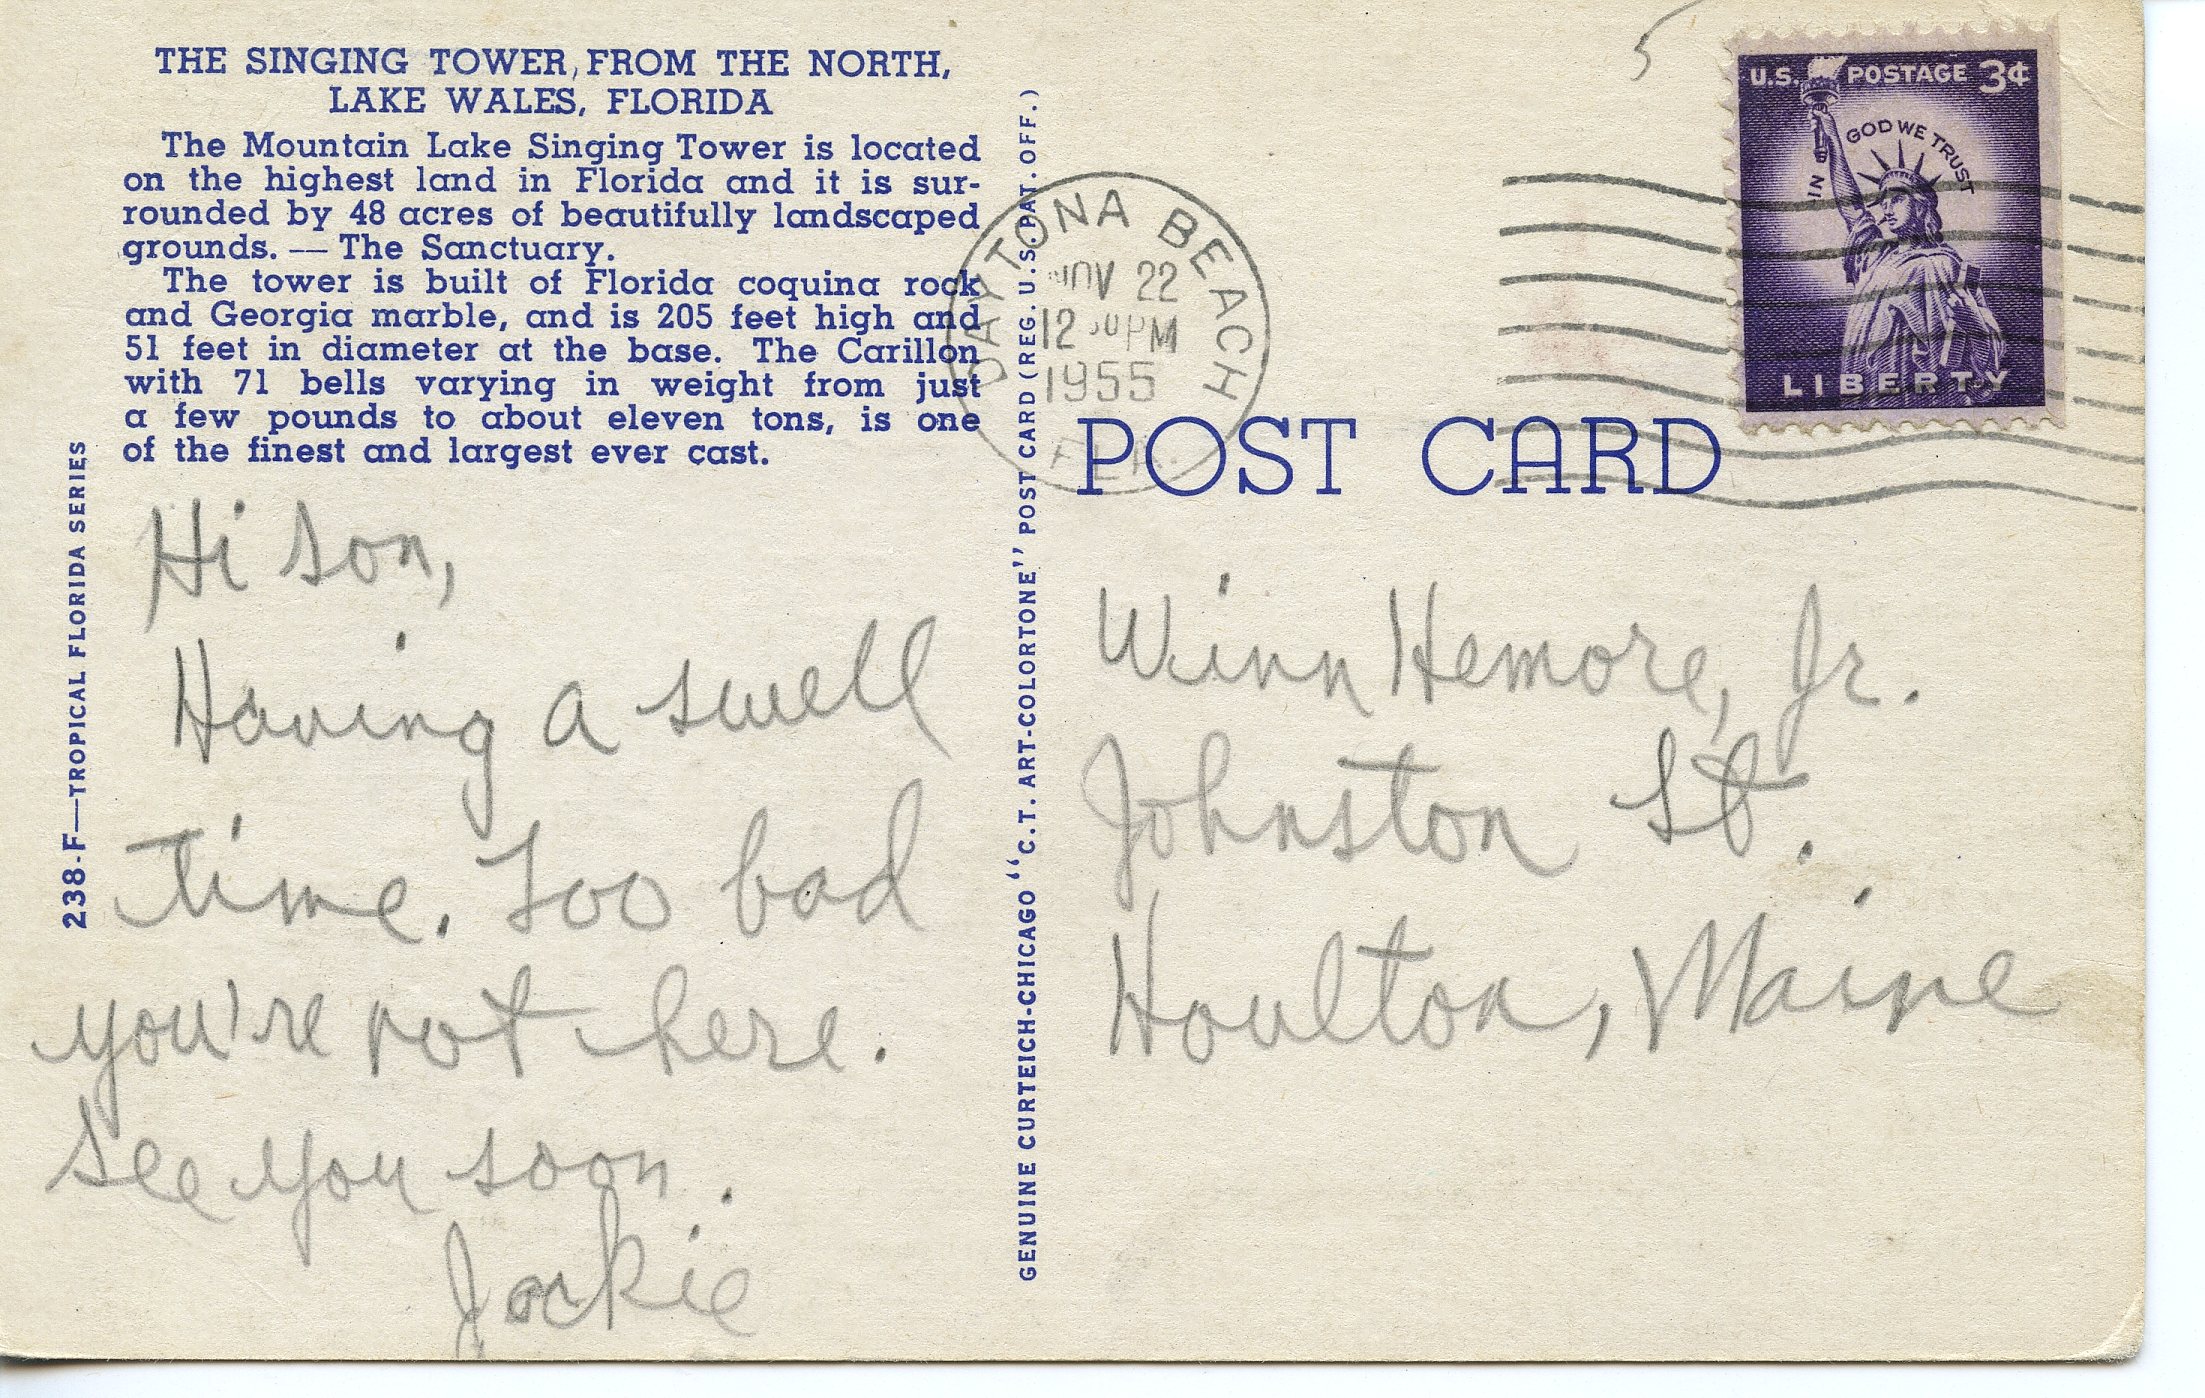 THE SINGING TOWER, FROM THE NORTH,
LAKE WALES, FLORIDA
The Mountain Lake Singing Tower is located
on the highest land in Florida and it is sur-
rounded by 48 acres of beautifully landscaped
grounds. — The Sanctuary.
The tower is built of Florida coquina rock
and Georgia marble, and is 205 feet high and
51 feet in diameter at the base. The Carillon
with 71 bells varying in weight from just
a few pounds to about eleven tons, is one
of the finest and largest ever cast.
238-F—TROPICAL FLORIDA SERIES
Hi Son,
Having a swell
time. Too bad
you're not here.
See you soon.
Jackie
GENUINE CURTEICH-CHICAGO "C.T. ART-COLORTONE" POST CARD (REG. U.S. PAT. OFF.)
DAYTONA BEACH
NOV 22
12 30 PM
1955
FLA.
5
U.S. POSTAGE 3¢
IN GOD WE TRUST
LIBERTY
POST CARD
Winn Hemore, Jr.
Johnston St.
Houlton, Maine